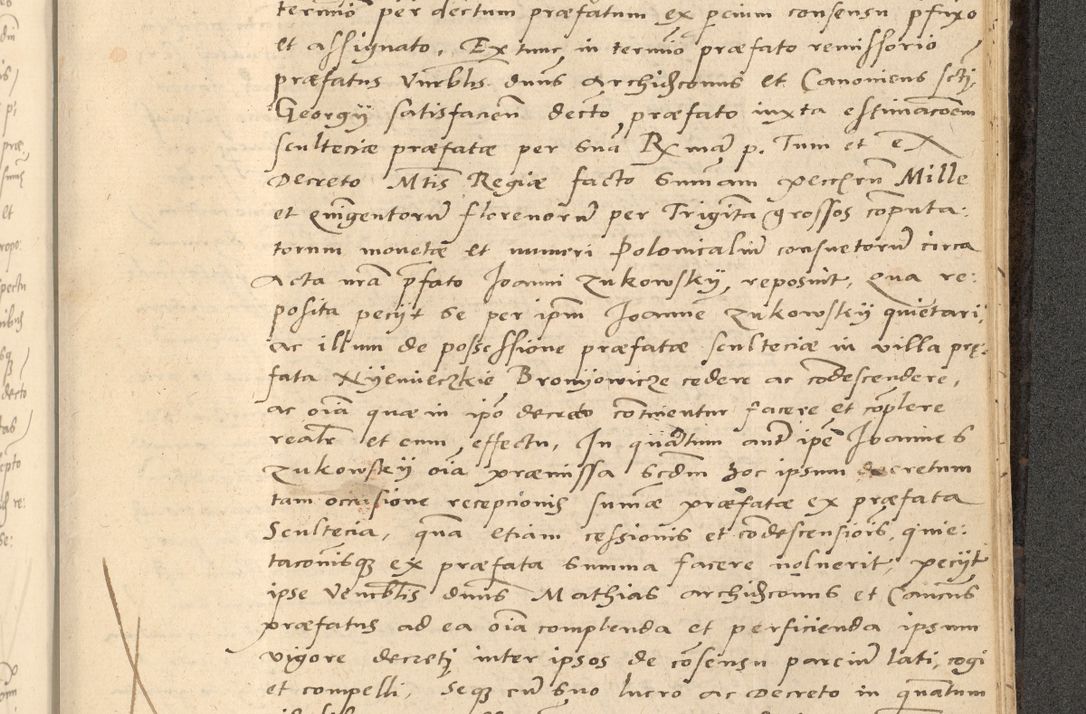 termiō per dectum præfatum ex pcium consensu pfixo
et assignato, Ex tunc in termīo præfato remissorio
præfatus Vnrblis dnūs Archidconus et Canonicus scti
Georgy satisfacień decto præfato iuxta estimacōem
sculteciæ præfatæ per Suā Rx mār p. Tum et ex
Decreto Mtis Regiæ facto Summam pecchru Mille
et Quīgentorū florenorū per Trigīta grossos cōputa:
torum monetæ et numeri Polonicaliū consuetorū circa
Acta nrā p̄fato Joanni Zukowsky, reposuit, qua re:
posita pecÿt se per ipm Joannē Zukowsky quietari,
ac illum de possessione præfatæ sculteciæ in villa pre:
fata Nyemieczkie Bronyowicze cedere ac cōdescendere,
ac oīa quæ in ipo decreto continentur facere et cōplere
realr et cum effectu, In quātum aut ipē Joannes
Zukowsky oīa præmissa scdm hoc ipsum decretum
tam occasione recepcionis sumæ præfatæ ex præfata
Scultecia, quā etiam cessionis et cōdescensiois, quie:
tacōnisq ex præfata Summa facere noluerit, pecÿt
ipse Venrblis dnūs Mathias Archidconus et Cancus
præfatus ad ea oīa complenda et perficienda ipsum
vigore decreti inter ipsos de cōsensu parciū lati, cogi
et compelli, Seq cū suo lucro ac Decreto in quātum